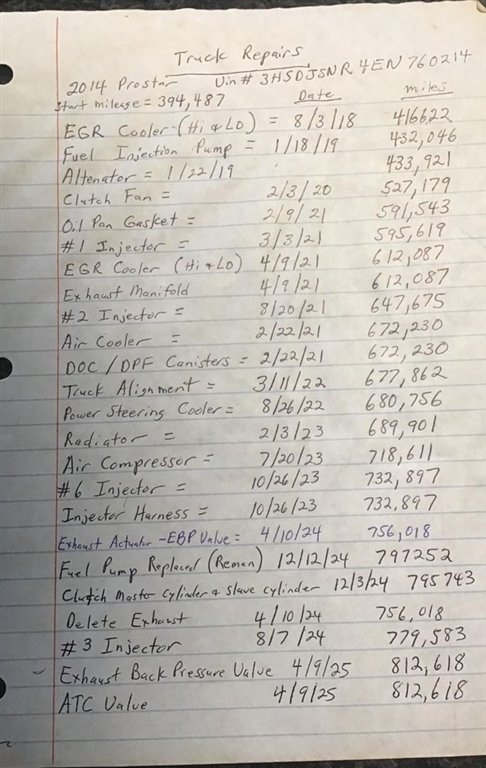 Truck Repairs
2014 Prostar Vin# 3HSDJSNR4EN760214
Start mileage = 394,487 Date miles
EGR Cooler (Hi & LO) = 8/3/18 416622
Fuel Injection Pump = 1/18/19 432,046
Altenator = 1/22/19 433,921
Clutch Fan = 2/3/20 527,179
Oil Pan Gasket = 2/9/21 591,543
#1 Injector = 3/3/21 595,619
EGR Cooler (Hi & LO) 4/9/21 612,087
Exhaust Manifold 4/9/21 612,087
#2 Injector = 8/20/21 647,675
Air Cooler = 2/22/21 672,230
DOC/DPF Canisters = 2/22/21 672,230
Truck Alignment = 3/11/22 677,862
Power Steering Cooler = 8/26/22 680,756
Radiator = 2/3/23 689,901
Air Compressor = 7/20/23 718,611
#6 Injector = 10/26/23 732,897
Injector Harness = 10/26/23 732,897
Exhaust Actuator - EBP Valve = 4/10/24 756,018
Fuel Pump Replaced (Reman) 12/12/24 797252
Clutch master cylinder & slave cylinder 12/3/24 795743
Delete Exhaust 4/10/24 756,018
#3 Injector 8/7/24 779,583
Exhaust Back Pressure Valve 4/9/25 812,618
ATC Valve 4/9/25 812,618